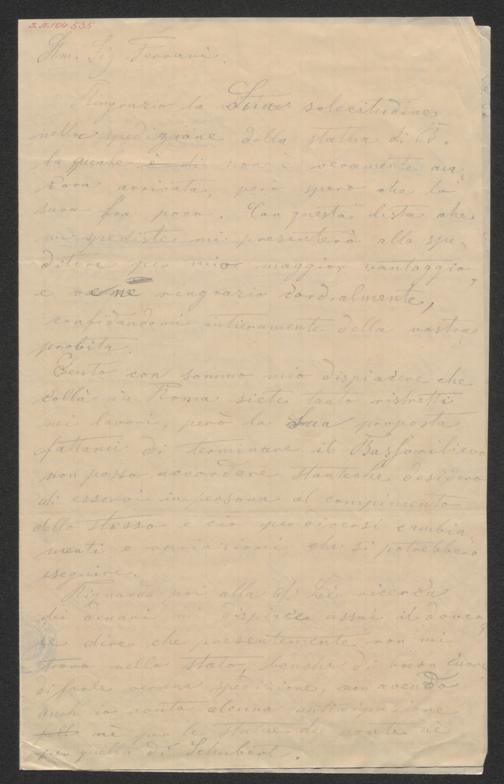 Ringrazio la Sua solecitudine
nella spedizione della statua di B.
la quale è di non è veramente an-
cora arrivata, però spero che lo
sarà fra poco. Con questa lista che
mi spediste mi presenterò allo spe-
ditore per mio maggior vantaggio,
e ve ne ringrazio cordialmente,
confidandomi intieramente della vostra
probità.
Sento con sommo mio dispiacere che
colla in Roma siete tanto ristretti
nei lavori, però la Sua proposta
fattami di terminare il Bassorilievo
non posso accordare stanteche desidero
di esservi in persona al compimento
dello stesso e ciò per diversi cambia-
menti e variazioni che si potrebbero
eseguire.
Riguardo poi alla di Lei ricerca
dei denari mi dispiace assai il dover-
le dire che presentemente non mi
trovo nello stato, benche di buon cuore,
di farle veruna spedizione, non avendo
anch io avuto alcuna anticipazione
nè per le statue del ponte nè
per quella di Schubert.